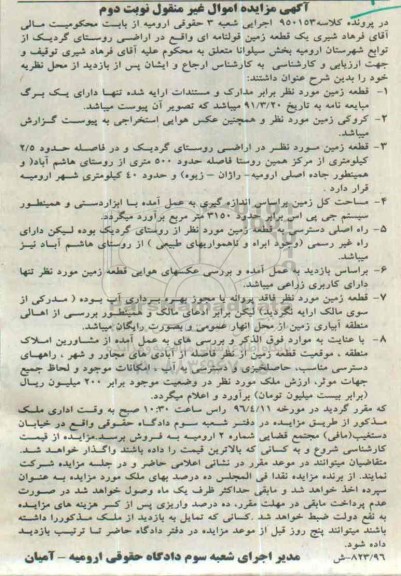 آگهی مزایده اموال غیر منقول نوبت دوم
در پرونده کلاسه ۹۵۰۱۵۳ اجرایی شعبه ۳ حقوقی ارومیه از بابت محکومیت مالی
آقای فرهاد شیری یک قطعه زمین قولنامه ای واقع در اراضی روستای گردیک از
توابع شهرستان ارومیه بخش سیلوانا متعلق به محکوم علیه آقای فرهاد شیری توقیف و
جهت ارزیابی و کارشناسی به کارشناس ارجاع و ایشان پس از بازدید از محل نظریه
خود را بدین شرح عنوان داشتند:
۱- قطعه زمین مورد نظر برابر مدارک و مستندات ارایه شده تنها دارای یک برگ
مبایعه نامه به تاریخ ۹۱/۳/۲۰ میباشد که تصویر آن پیوست میباشد.
۲- کروکی زمین مورد نظر و همچنین عکس هوایی استخراجی به پیوست گزارش
میباشد.
۳- قطعه زمین مورد نظر در اراضی روستای گردیک و در فاصله حدود ۲/۵
کیلومتری از مرکز همین روستا فاصله حدود ۵۰۰ متری از روستای هاشم آباد( و
همینطور جاده اصلی ارومیه- راژان - زیوه) و حدود ۴۰ کیلومتری شهر ارومیه
قرار دارد .
۴- ساحت کل زمین براساس اندازه گیری به عمل آمده با ابزاردستی و همینطور
سیستم جی پی اس برابر حدود ۳۱۵۰ متر مربع برآورد میگردد.
۵- راه اصلی دسترسی به قطعه زمین مورد نظر از روستای گردیک بوده لیکن دارای
راه غیر رسمی (وجود ابراه و ناهمواریهای طبیعی ) از روستای هاشم آباد نیز
میباشد.
۶- براساس بازدید به عمل آمده و بررسی عکسهای هوایی قطعه زمین مورد نظر تنها
دارای کاربری زراعی میباشد.
۷- قطعه زمین مورد نظر فاقد پروانه یا مجوز بهره برداری آب بوده ( مدرکی از
سوی مالک ارایه نگردید) لیکن برابر ادعای مالک و همینطور بررسی از اهالی
منطقه آبیاری زمین از محل انهار عمومی و بصورت رایگان میباشد.
۸- با عنایت به موارد فوق الذکر و بررسی های به عمل آمده از مشاورین املاک
منطقه ، موقعیت قطعه زمین از نظر فاصله از آبادی های مجاور و شهر ، راههای
دسترسی مناسب، حاصلخیزی و دسترسی به آب ، امکانات موجود و لحاظ جمیع
جهات موثر، ارزش ملک مورد نظر در وضعیت موجود برابر ۲۰۰ میلیون ریال
(برابر بیست میلیون تومان) برآورد و اعلام میگردد.
که مقرر گردید در مورخه ۹۶/۴/۱۱ راس ساعت ۱۰:۳۰ صبح به وقت اداری ملک
مذکور از طریق مزایده در دفتر شعبه سوم دادگاه حقوقی واقع در خیابان
دستغیب(مافی) مجتمع قضایی شماره ۲ ارومیه به فروش برسد.مزایده از قیمت
کارشناسی شروع و به کسانی که بالاترین قیمت را داده باشند واگذار خواهد شد.
متقاضیان میتوانند در موعد مقرر در نشانی اعلامی حاضر و در جلسه مزایده شرکت
نمایند. از برنده مزایده نقدا فی المجلس ده درصد بهای ملک مورد مزایده به عنوان
سپرده اخذ خواهد شد و مابقی حداکثر ظرف یک ماه وصول خواهد شد در صورت
عدم پرداخت مابقی در مهلت مقرر، ده درصد واریزی پس از کسر هزینه های مزایده
به نفع دولت ضبط خواهد شد .کسانی که تمایل به بازدید از ملک مذکوررا داشته
باشند میتوانند پنج روز قبل از موعد مزایده در دفتر دادگاه حاضر تا ترتیب بازدید
داده شود.
۸۲۳/۹۶-ش مدیر اجرای شعبه سوم دادگاه حقوقی ارومیه - آمیان